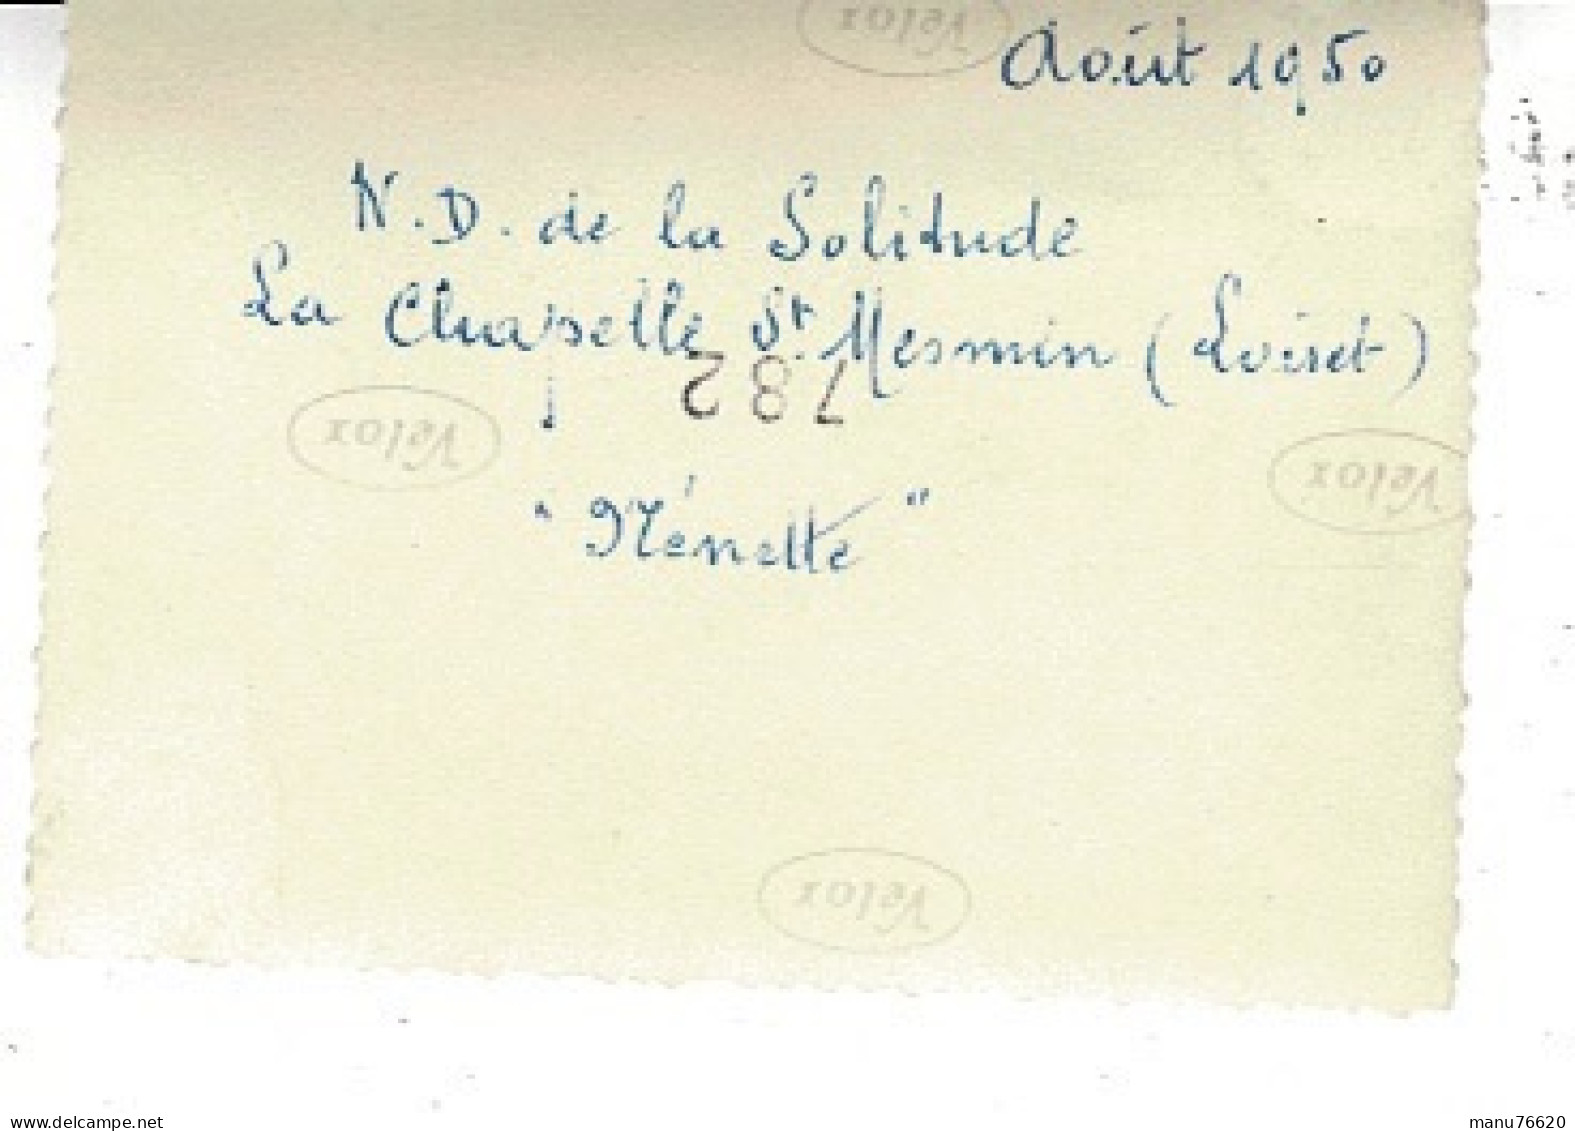 Velox
Août 1950
N.D. de la Solitude
La Chapelle St. Mesmin (Loiret)
782
Velox
Velox
"Ménette"
Velox
www.delcampe.net
manu76620